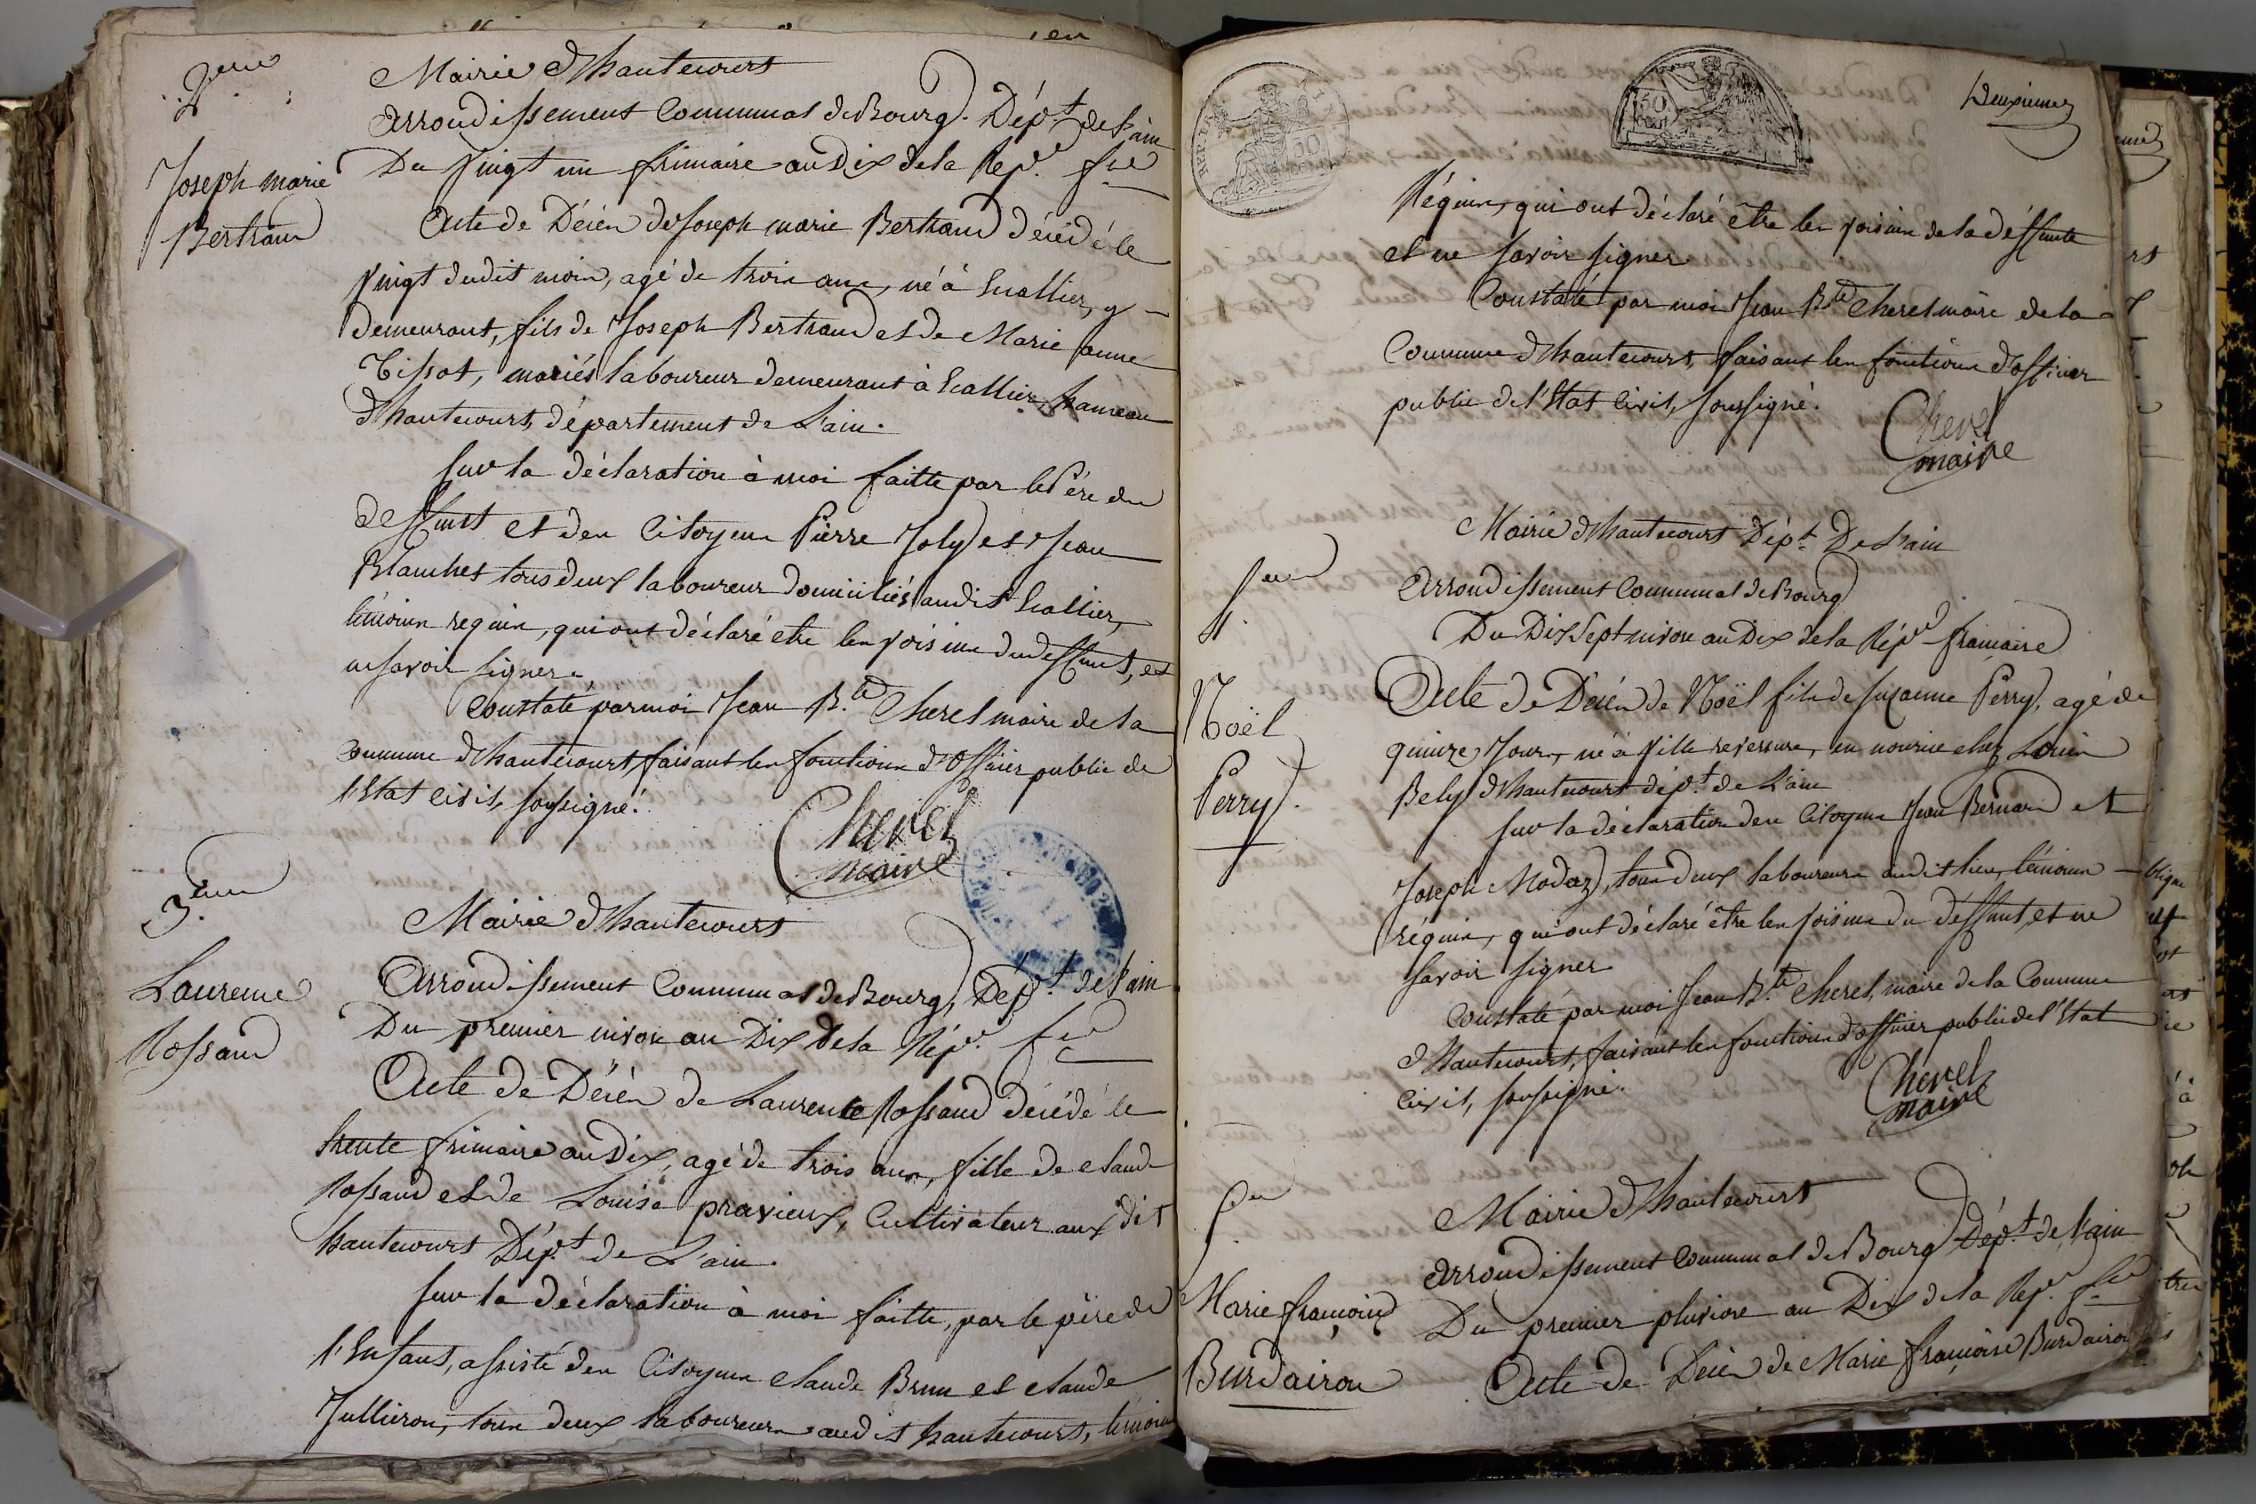 2eme
Joseph marie
Bertrand
Mairie d'hautecourt
arrondissement Communal de Bourg. Dépt. de L'ain
Du Vingt un frimaire an Dix de la Rep.e fse
Acte de Décès de Joseph marie Bertrand décédé le
Vingt dudit mois, agé de trois ans, né à Suallier, y
demeurant, fils de Joseph Bertrand et de Marie anne
Tissot, mariés laboureur demeurant à Suallier, hameau
d'hautecourt, département de L'ain.
sur la déclaration à moi faitte par le Père du
deffunt et des Citoyens Pierre Joly et Jean
Blanchet tous deux laboureur domiciliés audit Suallier,
témoins requis, qui ont déclaré etre les voisins du deffunt, et
ne savoir signer.
Constaté par moi Jean B.te Cherel maire de la
Commune d'hautecourt, faisant les fonctions d'officier public de
l'Etat Civil, soussigné.
Cherel
maire
3eme
Laurence
Rossand
Mairie d'hautecourt
Arrondissement Communal de Bourg, Dépt. de L'ain
Du premier nivose an Dix de la Rép.e fse
Acte de Décès de Laurence Rossand décédé le
trente frimaire an Dix, agé de trois ans, fille de Claude
Rossand et de Louise pravieux, Cultivateur audit
hautecourt Dépt. de L'ain.
sur la déclaration à moi faitte, par le père de
l'Enfant, assisté des Citoyens Claude Brun et Claude
Jullieron, tous deux laboureurs audit hautecourt, témoins
Deuxieme
Réquis, qui ont déclaré être les voisins de la déffunte
et ne savoir signer
Constaté par moi Jean B.te Cherel maire de la
Commune d'hautecourt, faisant les fonctions d'officier
public de l'Etat Civil, soussigné.
Cherel
maire
4eme
Noël
Perry.
Mairie d'hautecourt Dépt. De L'ain
Arrondissement Communal de Bourg
Du Dix Sept nivose an Dix de la Rép.e francaise
Acte de Décès de Noël fils de Suzanne Perry, agé de
quinze Jours, né à Ville reversure, en nourice chez Louis
Bely d'hautecourt dépt. de L'ain
sur la déclaration des Citoyens Jean Bernard et
Joseph Modaz, tous deux laboureurs audit lieu, témoins
réquis, qui ont déclaré être les voisins du déffunt, et ne
savoir signer
Constaté par moi Jean B.te Cherel, maire de la Commune
d'hautecourt, faisant les fonctions d'officier public de l'Etat
Civil, soussigné.
Cherel
maire
5eme
Marie françoise
Burdairon
Mairie d'hautecourt
arrondissement Communal de Bourg Dépt. de L'ain
Du premier pluviose an Dix de la Rép.e fse
Acte de Décès de Marie françoise Burdairon